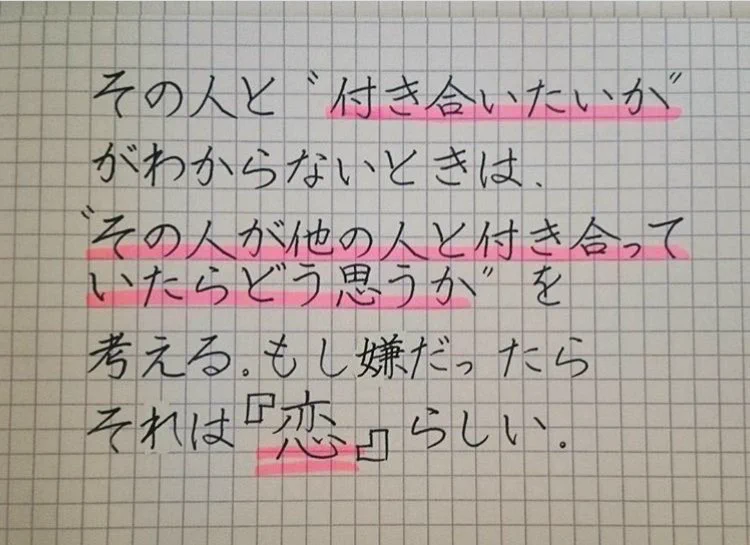 その人と〝付き合いたいか〞
がわからないときは、
〝その人が他の人と付き合って
いたらどう思うか〞を
考える。もし嫌だったら
それは『恋』らしい。